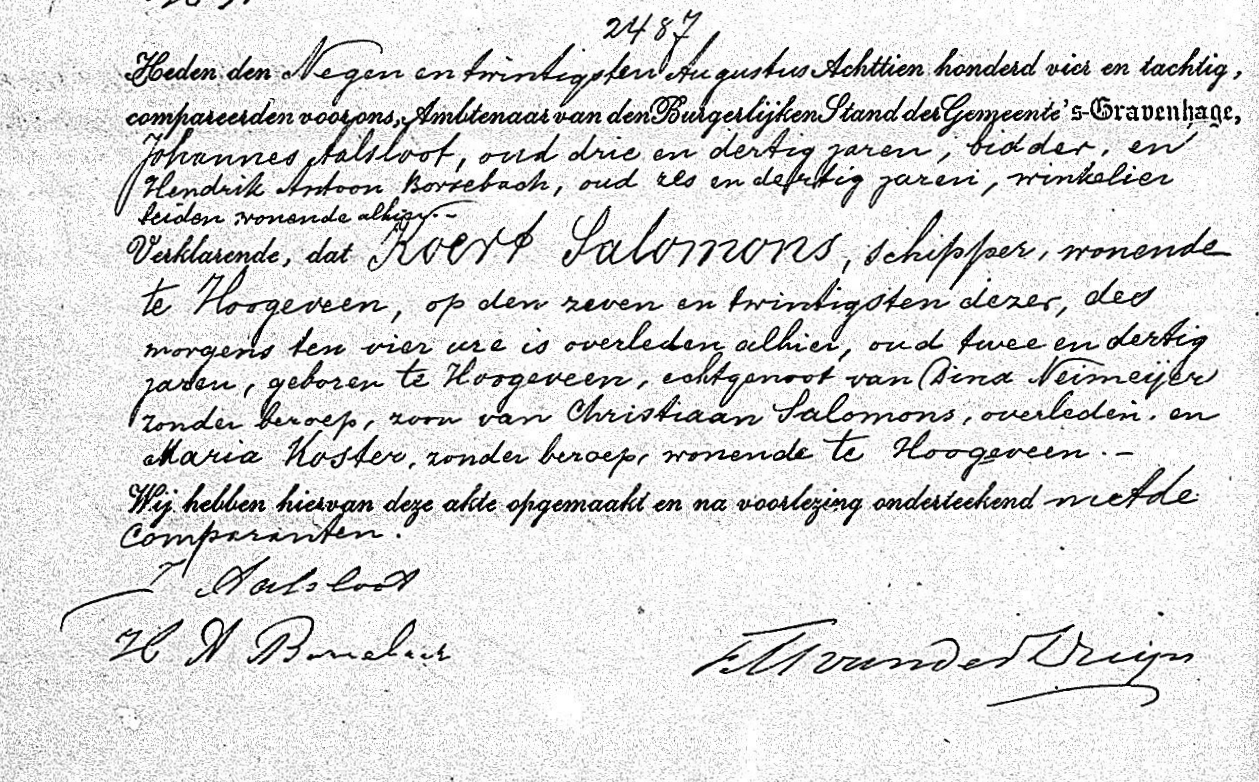 2487
Heden den Negen en twintigsten Augustus Achttien honderd vier en tachtig,
compareerden voor ons, Ambtenaar van den Burgerlijken Stand der Gemeente 's-Gravenhage,
Johannes Aalsloot, oud drie en dertig jaren, bidder, en
Hendrik Antoon Borsebach, oud zes en dertig jaren, winkelier
beiden wonende alhier.-
Verklarende, dat Koert Salomons, schipper, wonende
te Hoogeveen, op den zeven en twintigsten dezer, des
morgens ten vier ure is overleden alhier, oud twee en dertig
jaren, geboren te Hoogeveen, echtgenoot van Dina Neimeijer
zonder beroep, zoon van Christiaan Salomons, overleden. en
Maria Koster, zonder beroep, wonende te Hoogeveen.-
Wij hebben hiervan deze akte opgemaakt en na voorlezing onderteekend met de
Comparanten.
J Aalsloot
H A